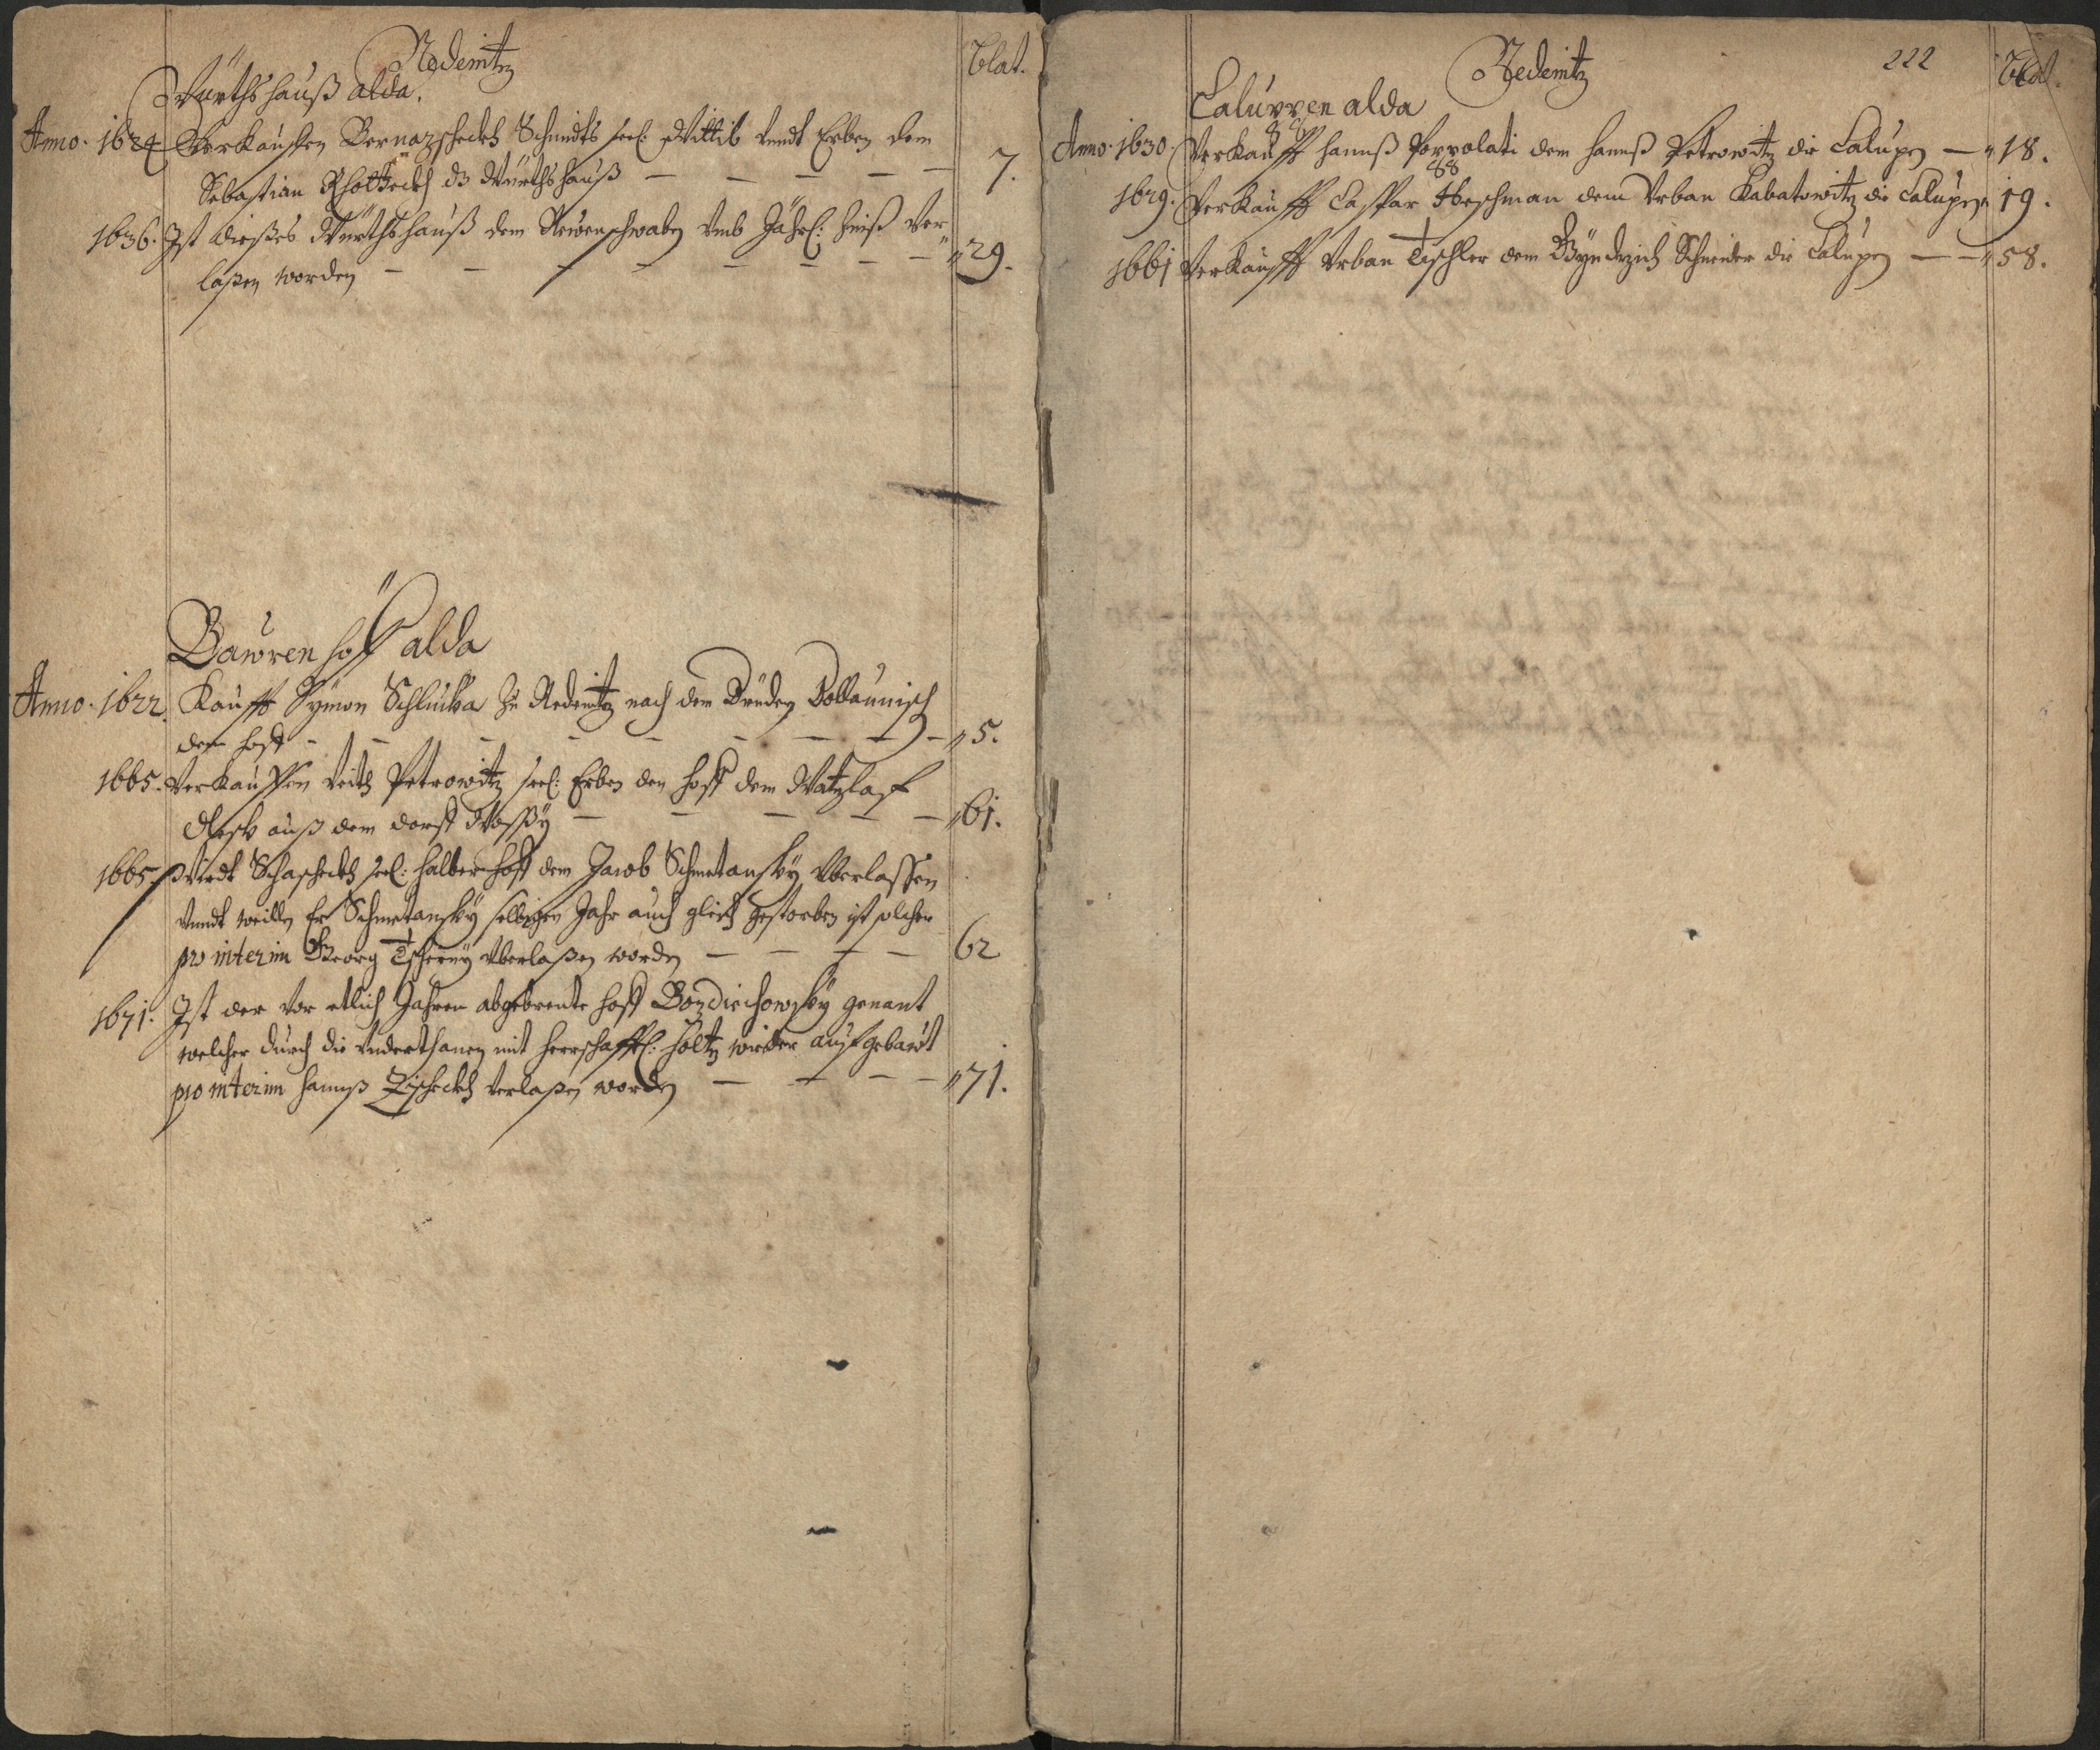 Redenitz
Blat.
Würthshauß alda.
Anno. 1624 Verkauffen Bernazscheckh Schmidts seel: Wittib vndt Erben dem
Sebastian dz Würthshauß — — — — — 7.
1636. Ist dießes Würthshauß dem vmb Jährl: Zinß ver„
laßen worden — — — — — — — — „ 29.
Bawren hoff alda
Anno. 1622. Kaufft Symon Schluika zu Redenitz nach dem
den hoff - - - - - - - - - „ 5.
1665. Verkauffen Veith Petrowitz seel: Erben den hoff dem Watzlaf
auß dem dorff — — — — — „ 61.
1665. Wirdt Schascheckh seel: halber hoff dem Jacob Schmetansky Vberlassen
vnndt weillen Er Schmetansky selbigen Jahr auch gleich gestorben ist solcher
pro interim Georg Tscherny Vberlaßen worden — — — — 62
1671. Ist der vor etlich Jahren abgebrente hoff Bozdiechowsky genant
welcher durch die Vnderthanen mit herrschafftl: holtz wieder auffgebawt
pro interim hannß Zischeckh Verlaßen worden — — — — „ 71.
Redenitz
222
Blat.
Caluppen alda
Anno. 1630. Verkaufft hannß Poppolati dem hannß Petrowitz die Calupen — „ 18.
1629. Verkaufft Caspar Heschman dem Vrban Kabatowitz die Calupen „ 19.
1661 Verkaufft Vrban Tischler dem Schneider die Calupen — — „ 58.